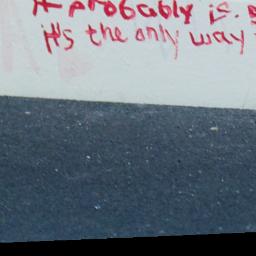 It probably is.
it's the only way